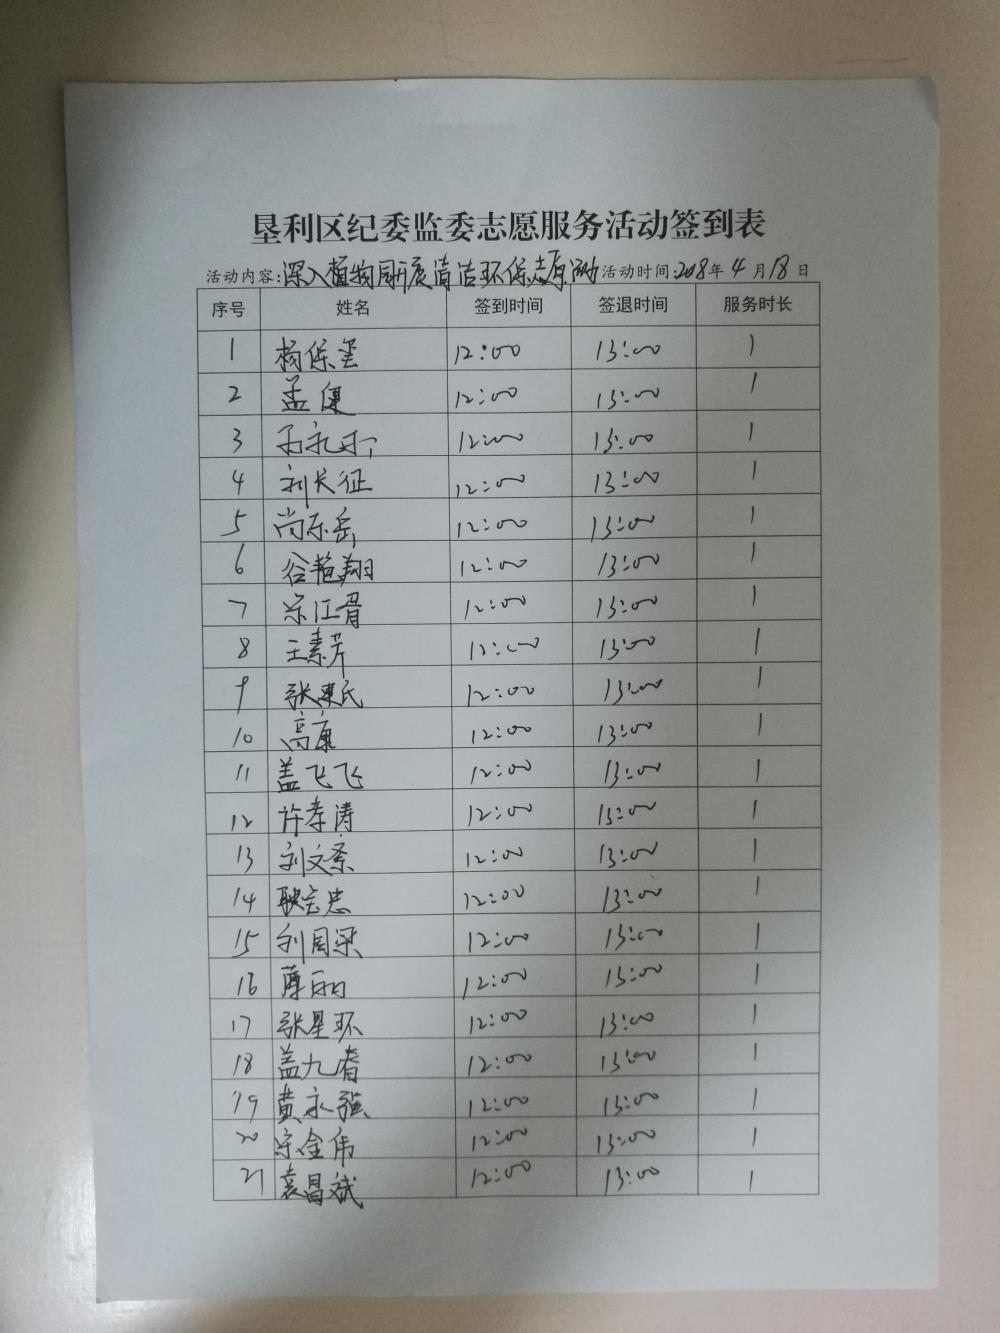 垦利区纪委监委志愿服务活动签到表
活动内容:深入植物园开展清洁环保志愿活动 活动时间:2018年4月18日
序号 姓名 签到时间 签退时间 服务时长
1 杨保玺 12:00 13:00 1
2 孟健 12:00 13:00 1
3 12:00 13:00 1
4 刘长征 12:00 13:00 1
5 尚东岳 12:00 13:00 1
6 谷艳翔 12:00 13:00 1
7 宋江胥 12:00 13:00 1
8 王素芹 12:00 13:00 1
9 张建民 12:00 13:00 1
10 高康 12:00 13:00 1
11 盖飞飞 12:00 13:00 1
12 许孝涛 12:00 13:00 1
13 刘文 12:00 13:00 1
14 耿宝忠 12:00 13:00 1
15 刘国梁 12:00 13:00 1
16 薄丽 12:00 13:00 1
17 张星环 12:00 13:00 1
18 盖九 12:00 13:00 1
19 黄永强 12:00 13:00 1
20 宋金伟 12:00 13:00 1
21 袁昌斌 12:00 13:00 1